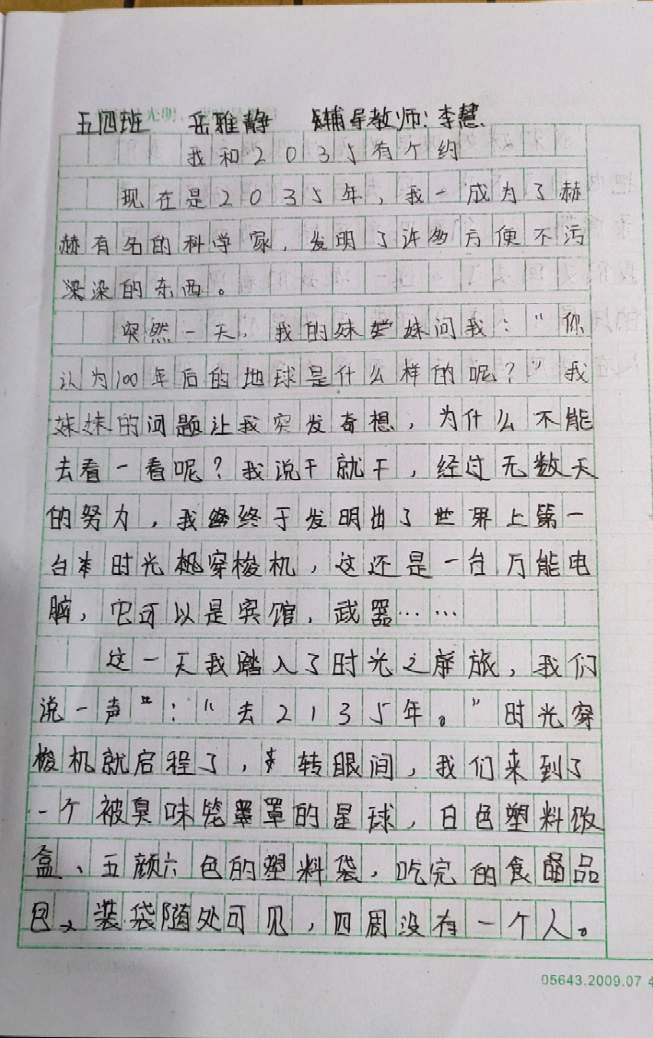 五四班 岳雅静 辅导教师:李慧
我和2035有个约
现在是2035年,我一成为了赫
赫有名的科学家,发明了许多方便不污
染的东西。
突然一天,我的妹妹问我:“你
认为100年后的地球是什么样的呢?”我
妹妹的问题让我突发奇想,为什么不能
去看一看呢?我说干就干,经过无数天
的努力,我终于发明出了世界上第一
台时光穿梭机,这还是一台万能电
脑,它可以是宾馆,武器……
这一天我踏入了时光之旅,我们
说一声:“去2135年。”时光穿
梭机就启程了,转眼间,我们来到了
一个被臭味笼罩的星球,白色塑料饭
盒、五颜六色的塑料袋,吃完的食品
包装袋随处可见,四周没有一个人。
05643.2009.07